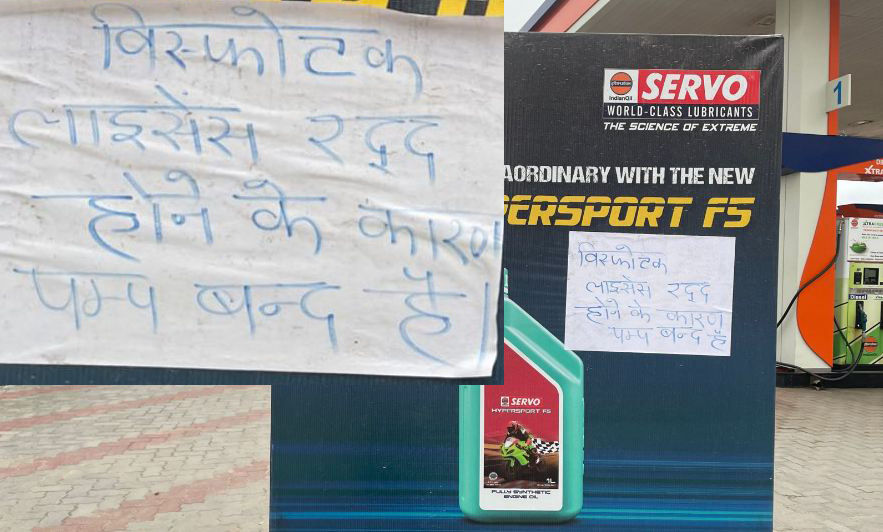 विस्फोटक
लाइसेंस रद्द
होने के कारण
पम्प बन्द है।
IndianOil
SERVO
WORLD-CLASS LUBRICANTS
THE SCIENCE OF EXTREME
1
AORDINARY WITH THE NEW
PERSPORT F5
विस्फोटक
लाइसेंस रद्द
होने के कारण
पम्प बन्द है
XTRA
Diesel
SERVO
HYPERSPORT F5
1L
FULLY SYNTHETIC
ENGINE OIL